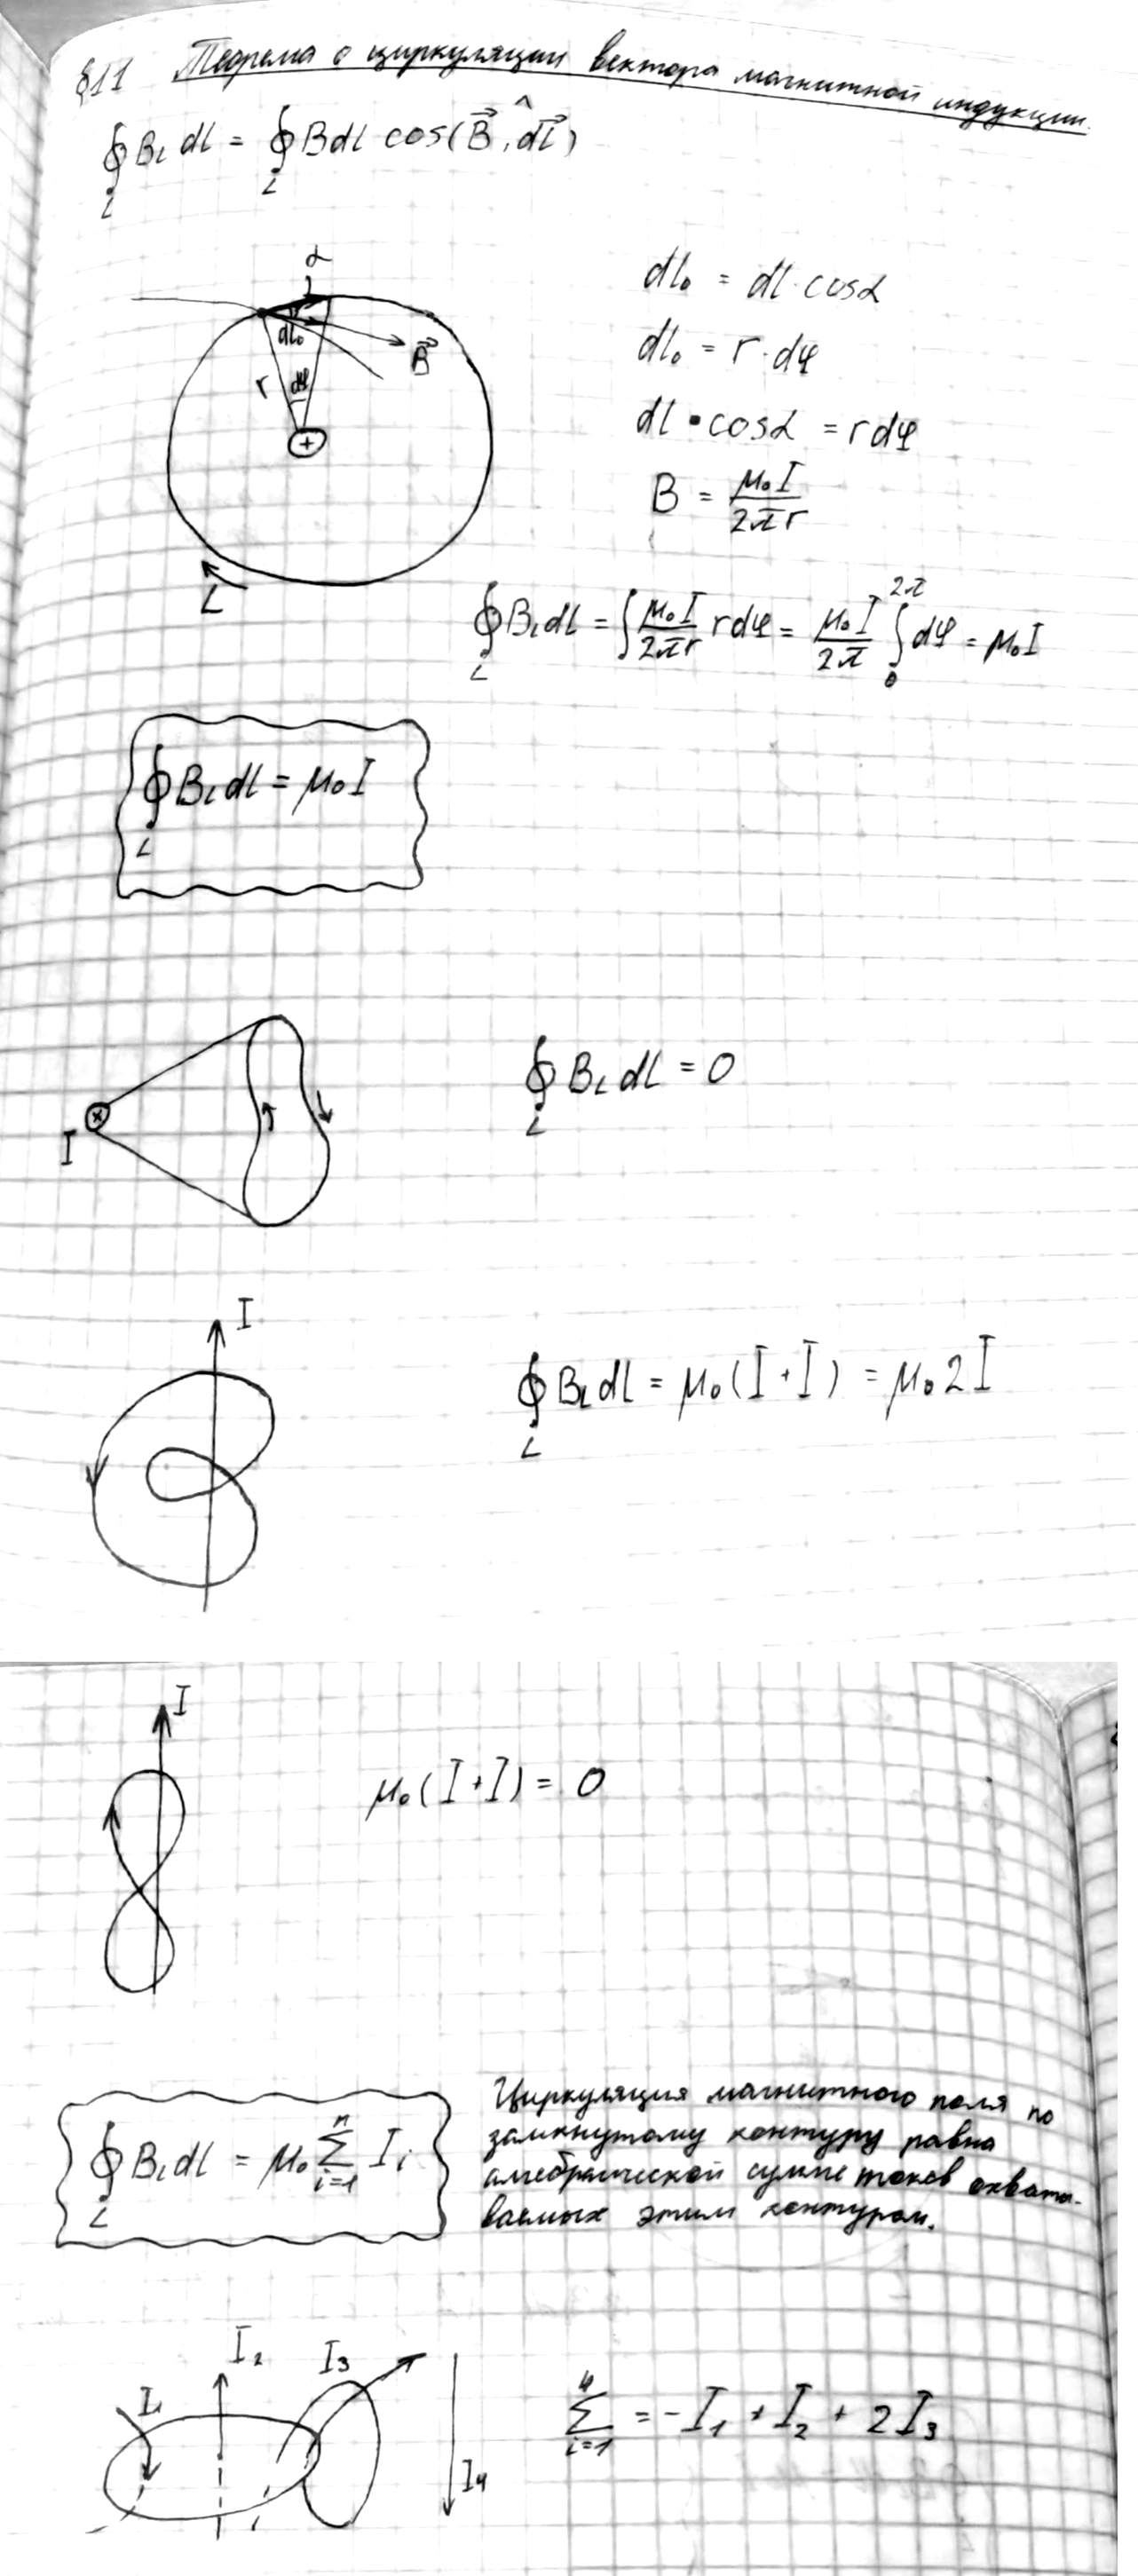 §11 Теорема о циркуляции вектора магнитной индукции.
∮_L B_l dl = ∮_L Bdl cos(B⃗,^dl⃗)
α
dl₀
B⃗
r
dφ
+
L
dl₀ = dl·cosα
dl₀ = r·dφ
dl·cosα = rdφ
B = μ₀I / 2πr
∮_L B_l dl = ∫ μ₀I/2πr rdφ = μ₀I/2π ∫₀^2π dφ = μ₀I
∮_L B_l dl = μ₀I
I
∮_L B_l dl = 0
I
∮_L B_l dl = μ₀(I+I) = μ₀2I
I
μ₀(I+I) = 0
∮_L B_l dl = μ₀ ∑_{i=1}^n I_i
Циркуляция магнитного поля по
замкнутому контуру равна
алгебраической сумме токов охваты-
ваемых этим контуром.
I₁
I₂
I₃
I₄
∑_{i=1}^4 = -I₁ + I₂ + 2I₃